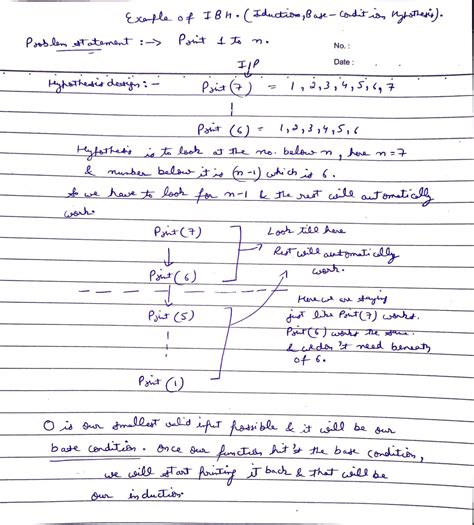 Example of IBH. (Induction, Base-Condition, Hypothesis).
Problem statement :→ Print 1 to n.
No. :
Date :
I/P
Hypothesis design :- Print (7) = 1, 2, 3, 4, 5, 6, 7
Print (6) = 1, 2, 3, 4, 5, 6
Hypothesis is to look at the no. below n, here n=7
& number below it is (n-1) which is 6.
So we have to look for n-1 & the rest will automatically
work.
Print (7)
Look till here
Rest will automatically
work.
Print (6)
Print (5)
Here we are saying
just like Print (7) works.
Print (6) works the same.
& we don't need beneath
of 6.
Print (1)
0 is our smallest valid input possible & it will be our
base condition. Once our function hit's the base condition,
we will start printing it back & that will be
our induction.